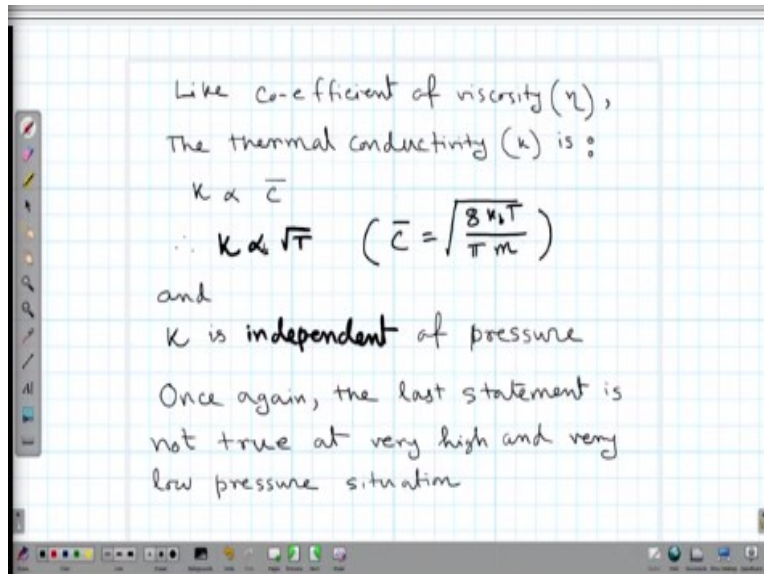 Like co-efficient of viscosity (η),
The thermal conductivity (κ) is :
κ α c̄
∴ κ α √T ( c̄ = √(8 k_b T / π m) )
and
κ is independent of pressure
Once again, the last statement is
not true at very high and very
low pressure situation